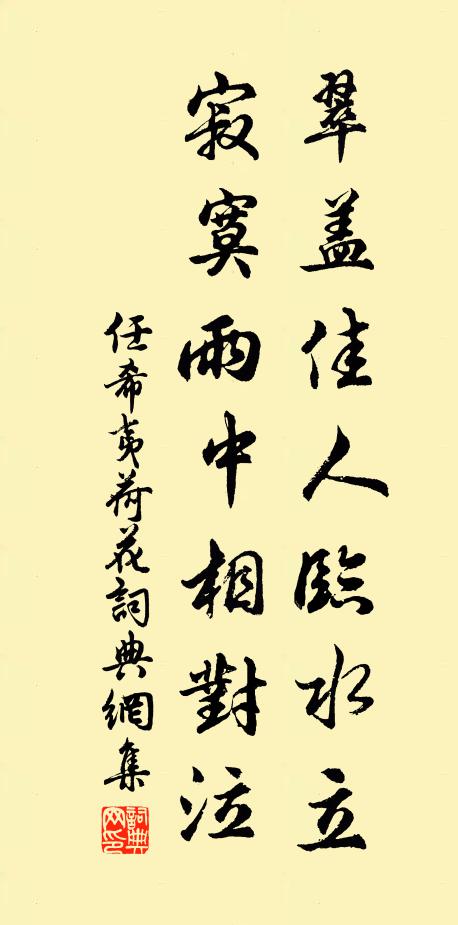 翠盖佳人臨水立
寂寞雨中相對泣
任希夷荷花詞典網集
詞典網印